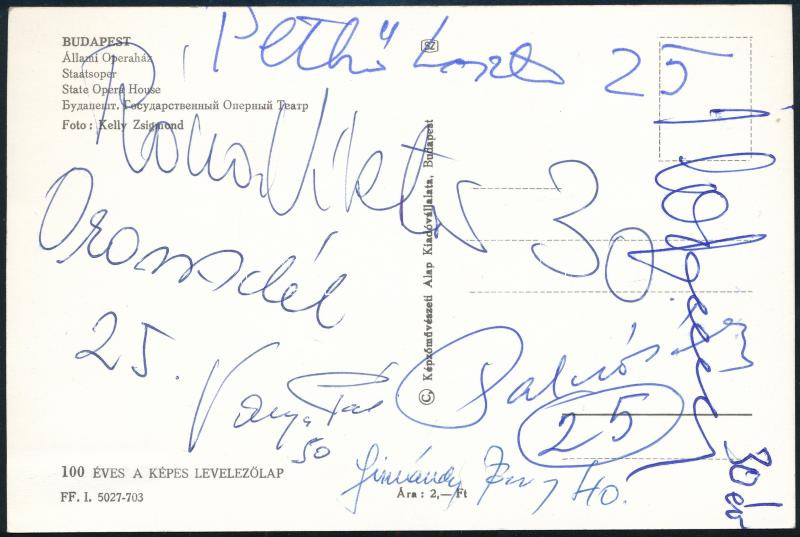 BUDAPEST
Állami Operaház
Staatsoper
State Opera House
Будапешт. Государственный Оперный Театр
Foto: Kelly Zsigmond
SZ
Pethő László 25
Róna Viktor 30
Orosz
25.
Varga Pál
50
25
Gimándy
40.
30 év
© Képzőművészeti Alap Kiadóvállalata, Budapest
100 ÉVES A KÉPES LEVELEZŐLAP
FF. I. 5027-703
Ára: 2,—Ft